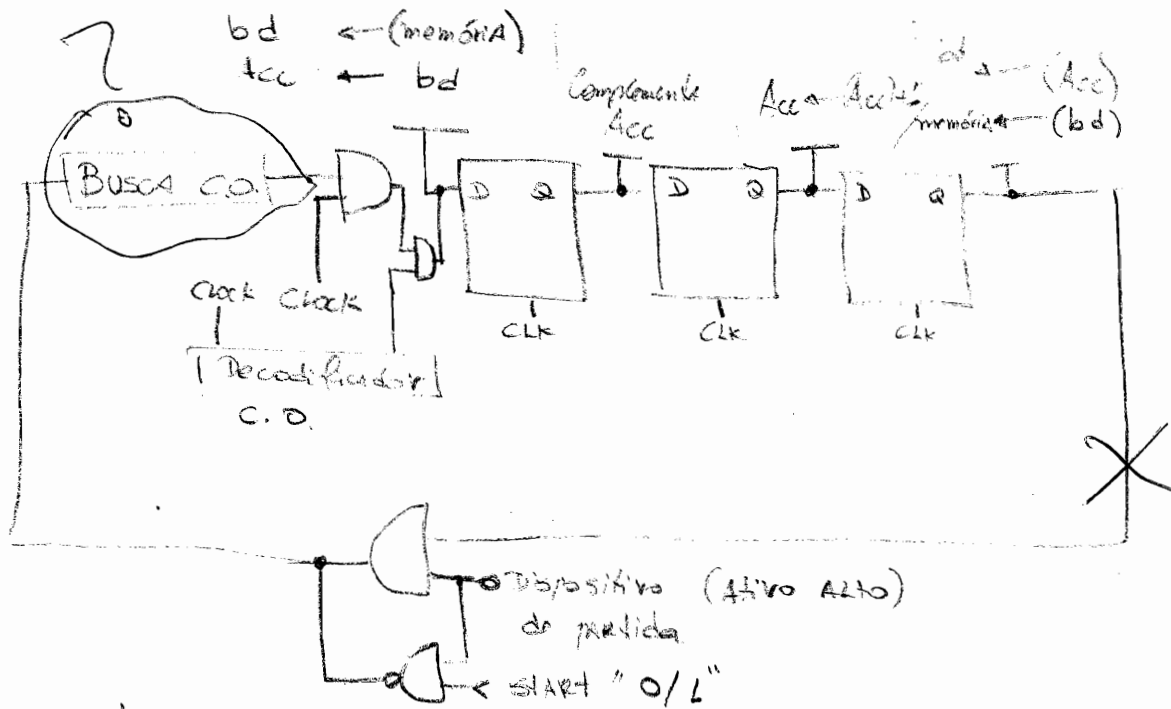 bd ← (memória)
Acc ← bd
Complemento
Acc
Acc ←
bd ← (Acc)
memória ← (bd)
BUSCA C.O.
D Q
D Q
D Q
Clock Clock
CLK
CLK
CLK
Decodificador
C.O.
Dispositivo (Ativo ALto)
de partida
START "0/1"